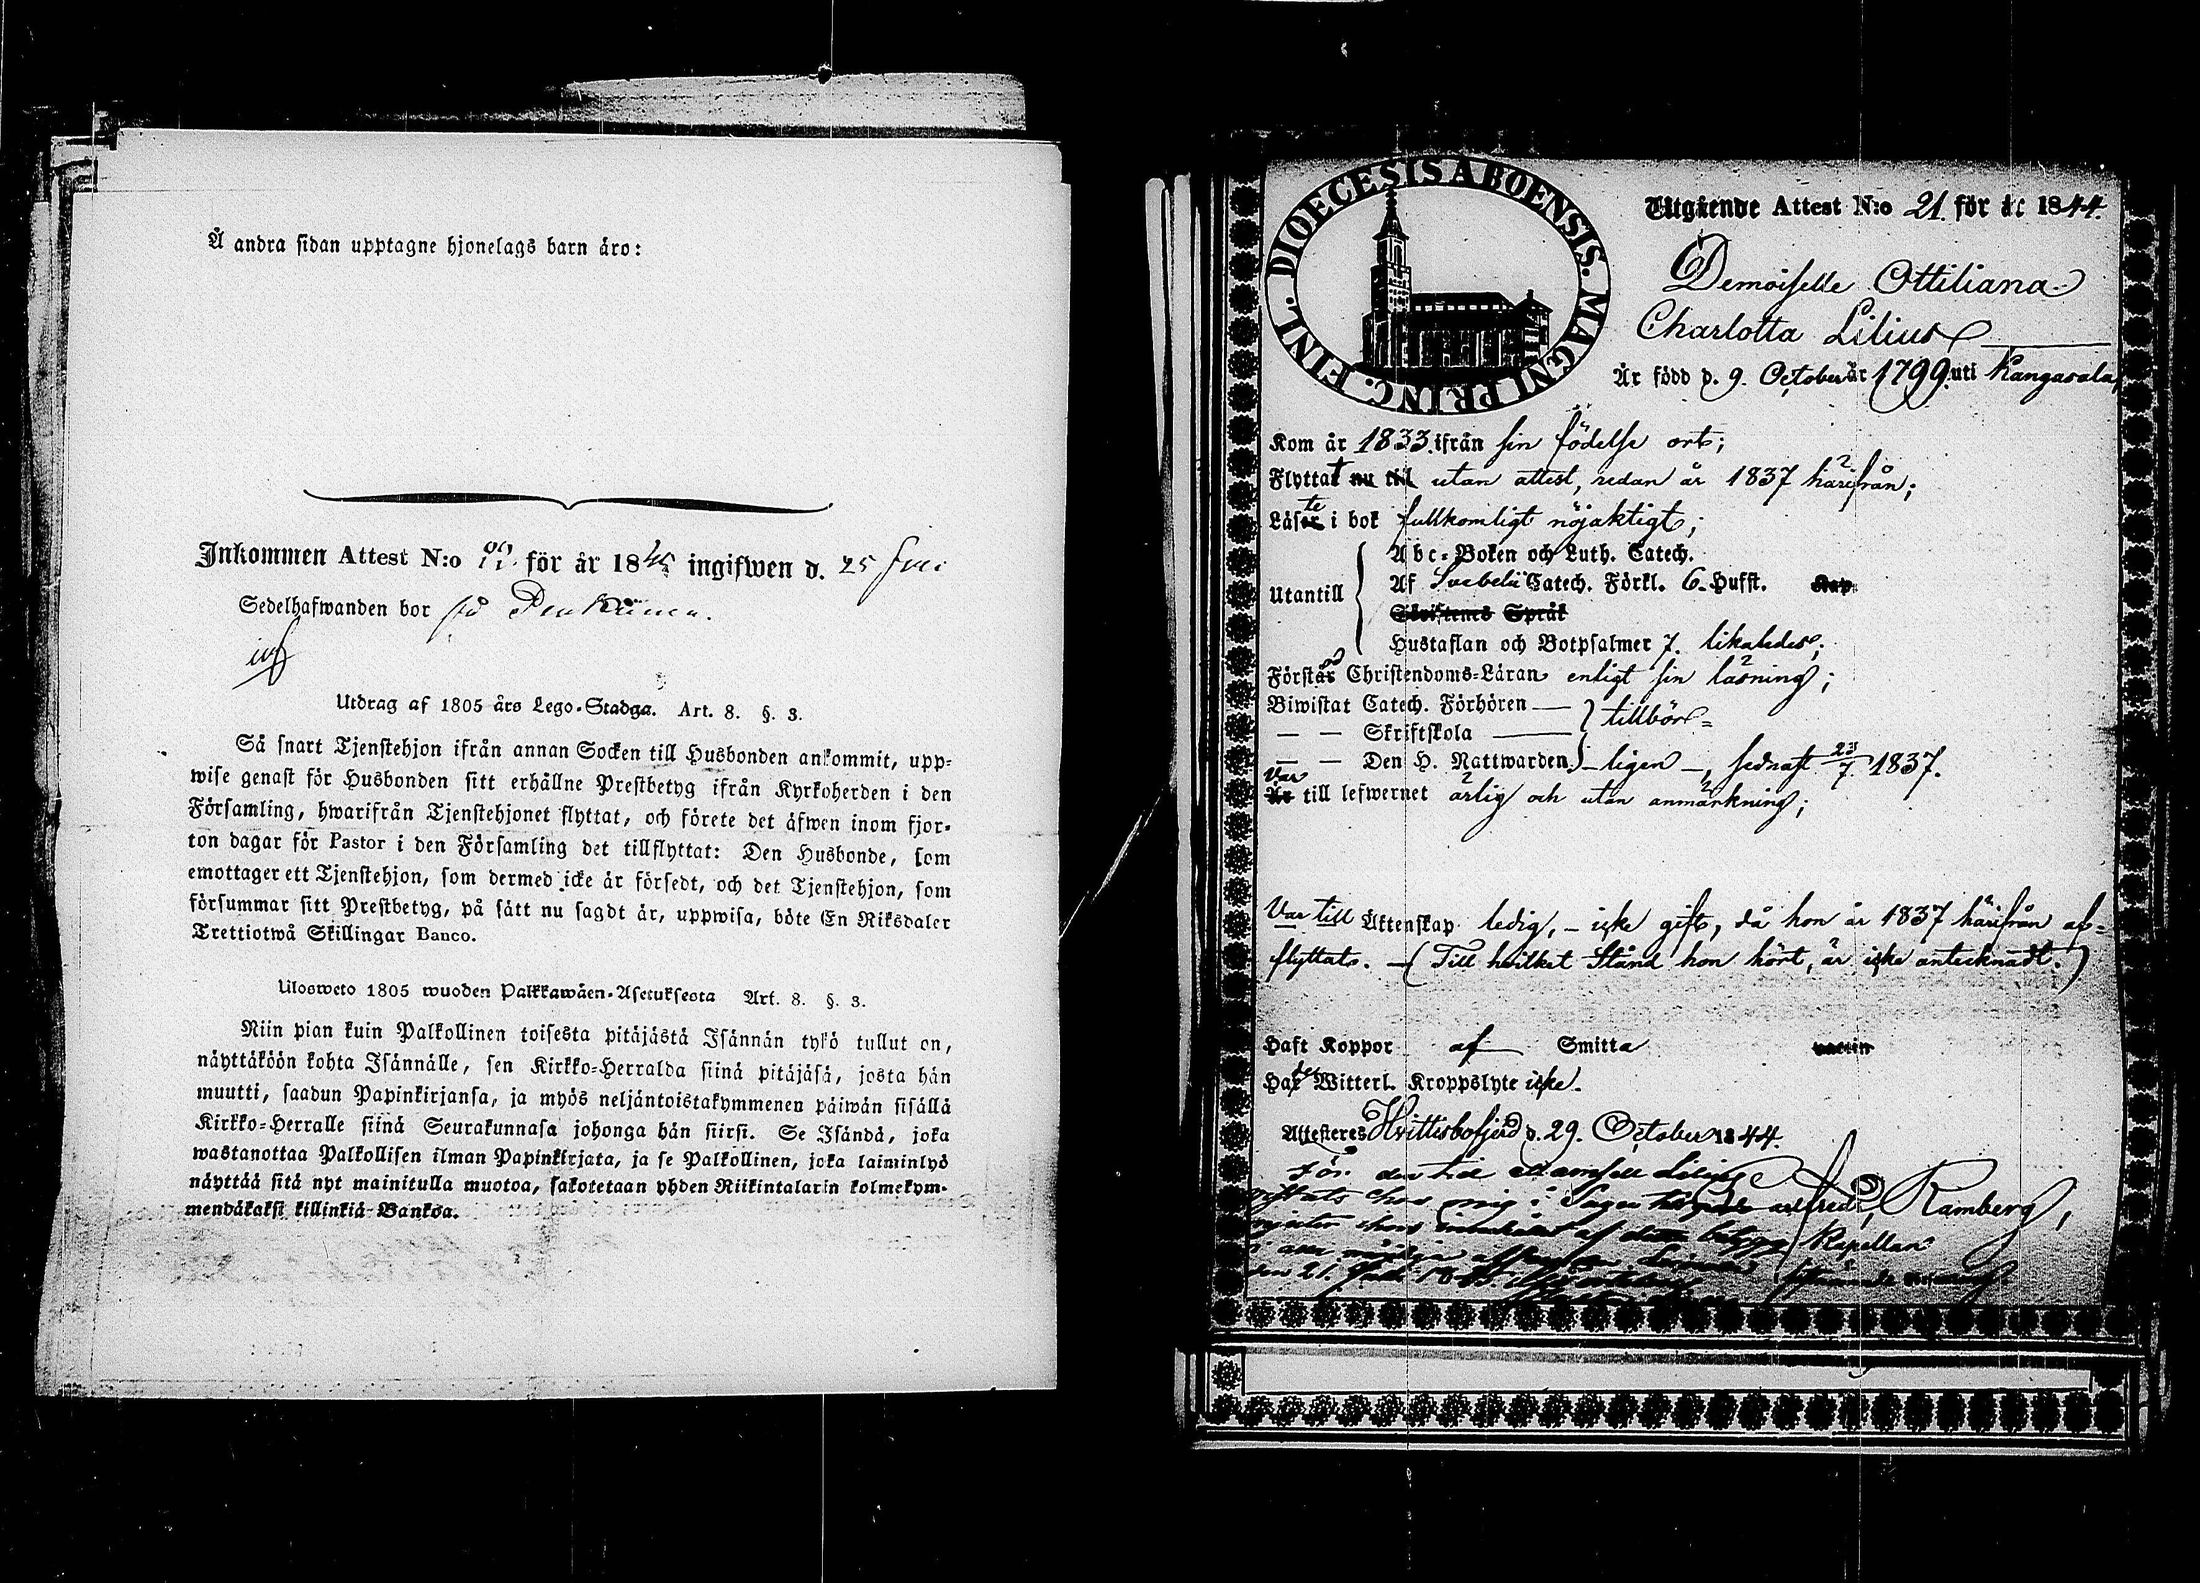 Å andra sidan upptagne hjonelags barn äro:
Inkommen Attest N:o för år 1845 ingifwen d. 25 Juli
Sedelhafwanden bor på
Utdrag af 1805 års Lego-Stadga. Art. 8. §. 3.
Så snart Tjenstehjon ifrån annan Socken till Husbonden ankommit, upp-
wise genast för Husbonden sitt erhållne Prestbetyg ifrån Kyrkoherden i den
Församling, hwarifrån Tjenstehjonet flyttat, och förete det äfwen inom fjor-
ton dagar för Pastor i den Församling det tillflyttat: Den Husbonde, som
emottager ett Tjenstehjon, som dermed icke är försedt, och det Tjenstehjon, som
försummar sitt Prestbetyg, på sätt nu sagdt är, uppwisa, böte En Riksdaler
Trettiotwå Skillingar Banco.
Ulosweto 1805 wuoden Palkkawäen-Asetuksesta Art. 8. §. 3.
Niin pian kuin Palkollinen toisesta pitäjästä Isännän tykö tullut on,
näyttäköön kohta Isännälle, sen Kirkko-Herralda siinä pitäjäsä, josta hän
muutti, saadun Papinkirjansa, ja myös neljäntoistakymmenen päiwän sisällä
Kirkko-Herralle siinä Seurakunnasa johonga hän siirsi. Se Isändä, joka
wastanottaa Palkollisen ilman Papinkirjata, ja se Palkollinen, joka laiminlyö
näyttää sitä nyt mainitulla muotoa, sakotetaan yhden Riikintalarin kolmekym-
mendäkaksi killinkiä Bankoa.
DIOECESIS ABOENSIS. MAGNI PRINC. FINL.
Utgående Attest N:o 21. för år 1844.
Demoiselle Ottiliana
Charlotta Lilius
Är född d. 9. October år 1799. uti Kangasala,
Kom år 1833. ifrån sin födelse ort;
Flyttat nu till utan attest, redan år 1837 härifrån;
Läste i bok fullkomligt nöjaktigt;
Utantill
Abc-Boken och Luth. Catech.
Af Svebelii Catech. Förkl. 6. Hufst. Kap.
Skriftenes Språk
Hustaflan och Botpsalmer 7. likaledes;
Förstod Christendoms-Läran enligt sin läsning;
Biwistat Catech. Förhören — tillbör-
— — Skriftskola —
— — Den H. Nattwarden — ligen —, sednast 23/7 1837.
Var till lefwernet ärlig och utan anmärkning;
Var till Äktenskap ledig, – icke gift, då hon år 1837 härifrån af-
flyttats. – (Till hvilket Stånd hon hört, är icke antecknadt.)
Haft Koppor af Smitta
Hade Witterl. Kroppslyte icke.
Attesteres Hvittisbofjerd d. 29. October 1844.
Alfred Ramberg,
Kapellan